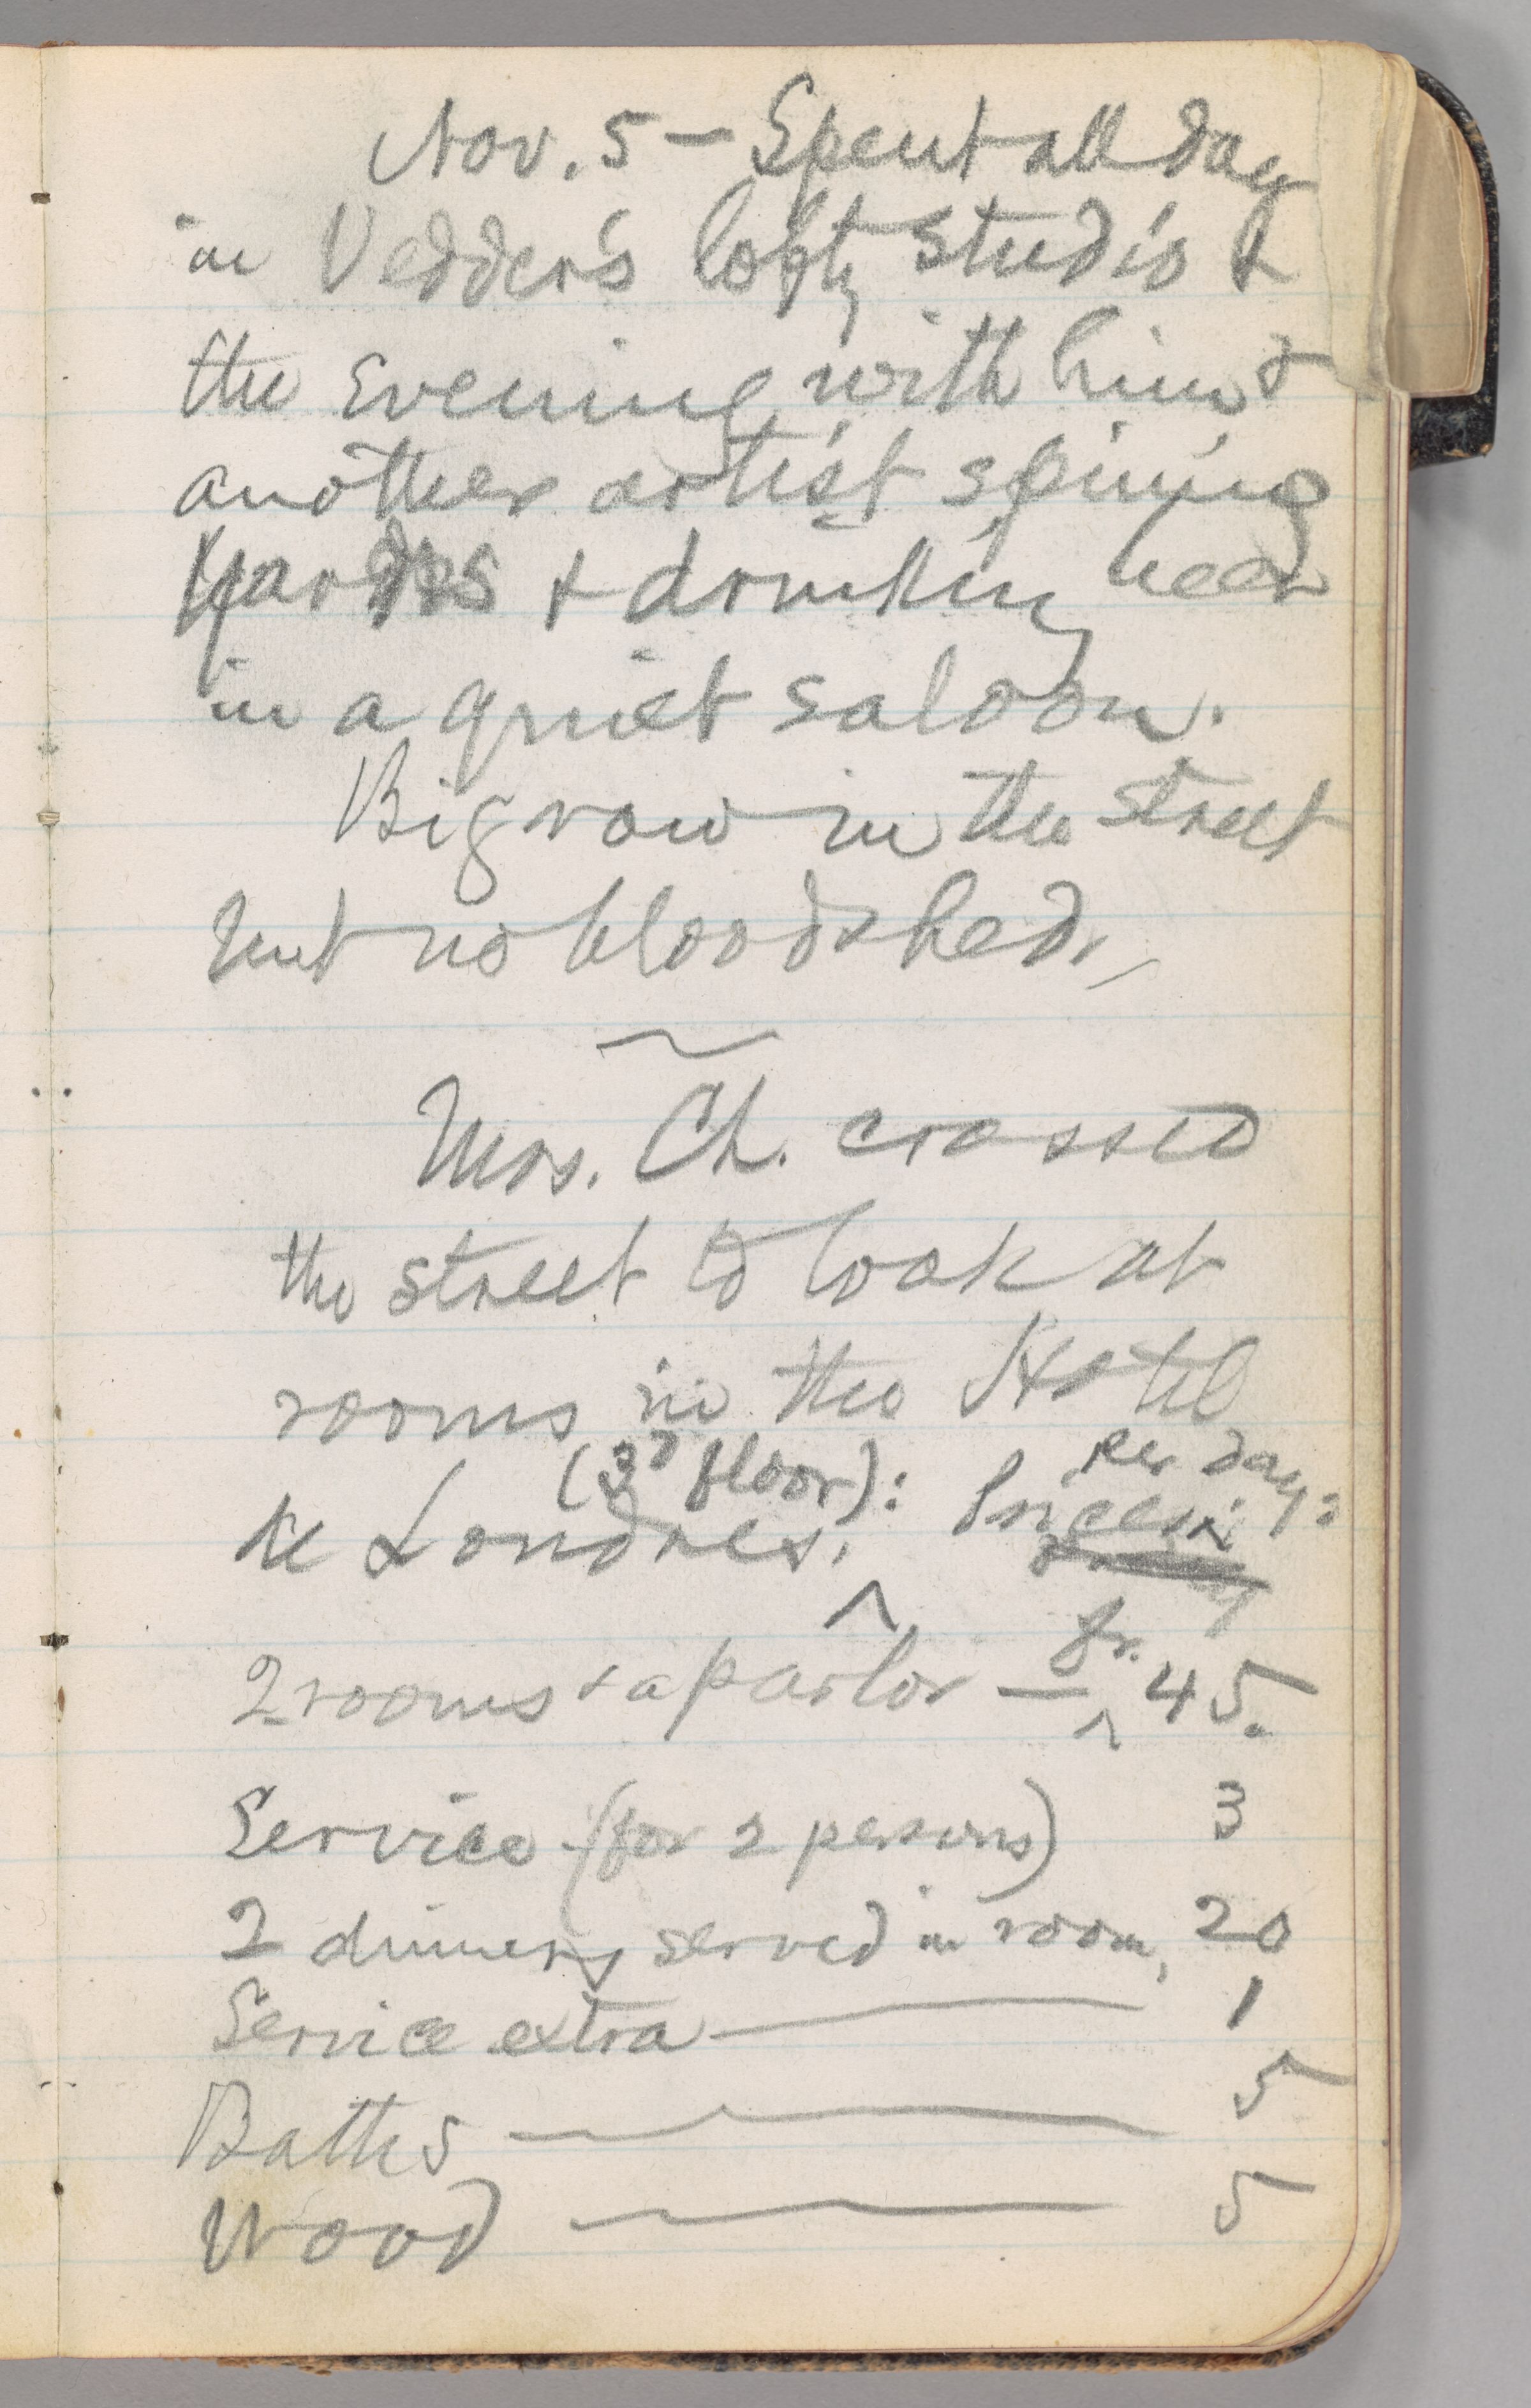 Nov. 5 — Spent all day
in Vedder's lofty studio &
the evening with him &
another artist spining
yarns & drinking beer
in a quiet saloon.
Big row in the street
but no bloodshed.
Mrs. Ch. crossed
the street to look at
rooms in the Hotel
(3d floor): per day:
de Londres. Prices
fr.
2 rooms & a parlor — 45.
Service (for 2 persons) 3
2 dinners served in room, 20
Service extra — 1
Baths — 5
Wood — 5